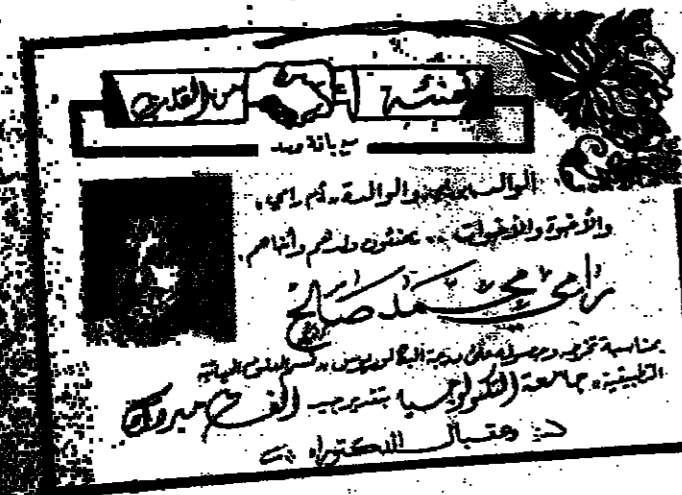 تهنئة من القلب
مع باقة ورد
الوالد والوالدة "أم رامي"
والأخوة والأخوات .. يهنئون ولدهم وأخاهم
رامي محمد صالح
بمناسبة تخرجه وحصوله على درجة البكالوريوس قسم العلوم الحياتية
التطبيقية، جامعة التكنولوجيا بتقدير جيد ألف مبروك
وعقبال الدكتوراه